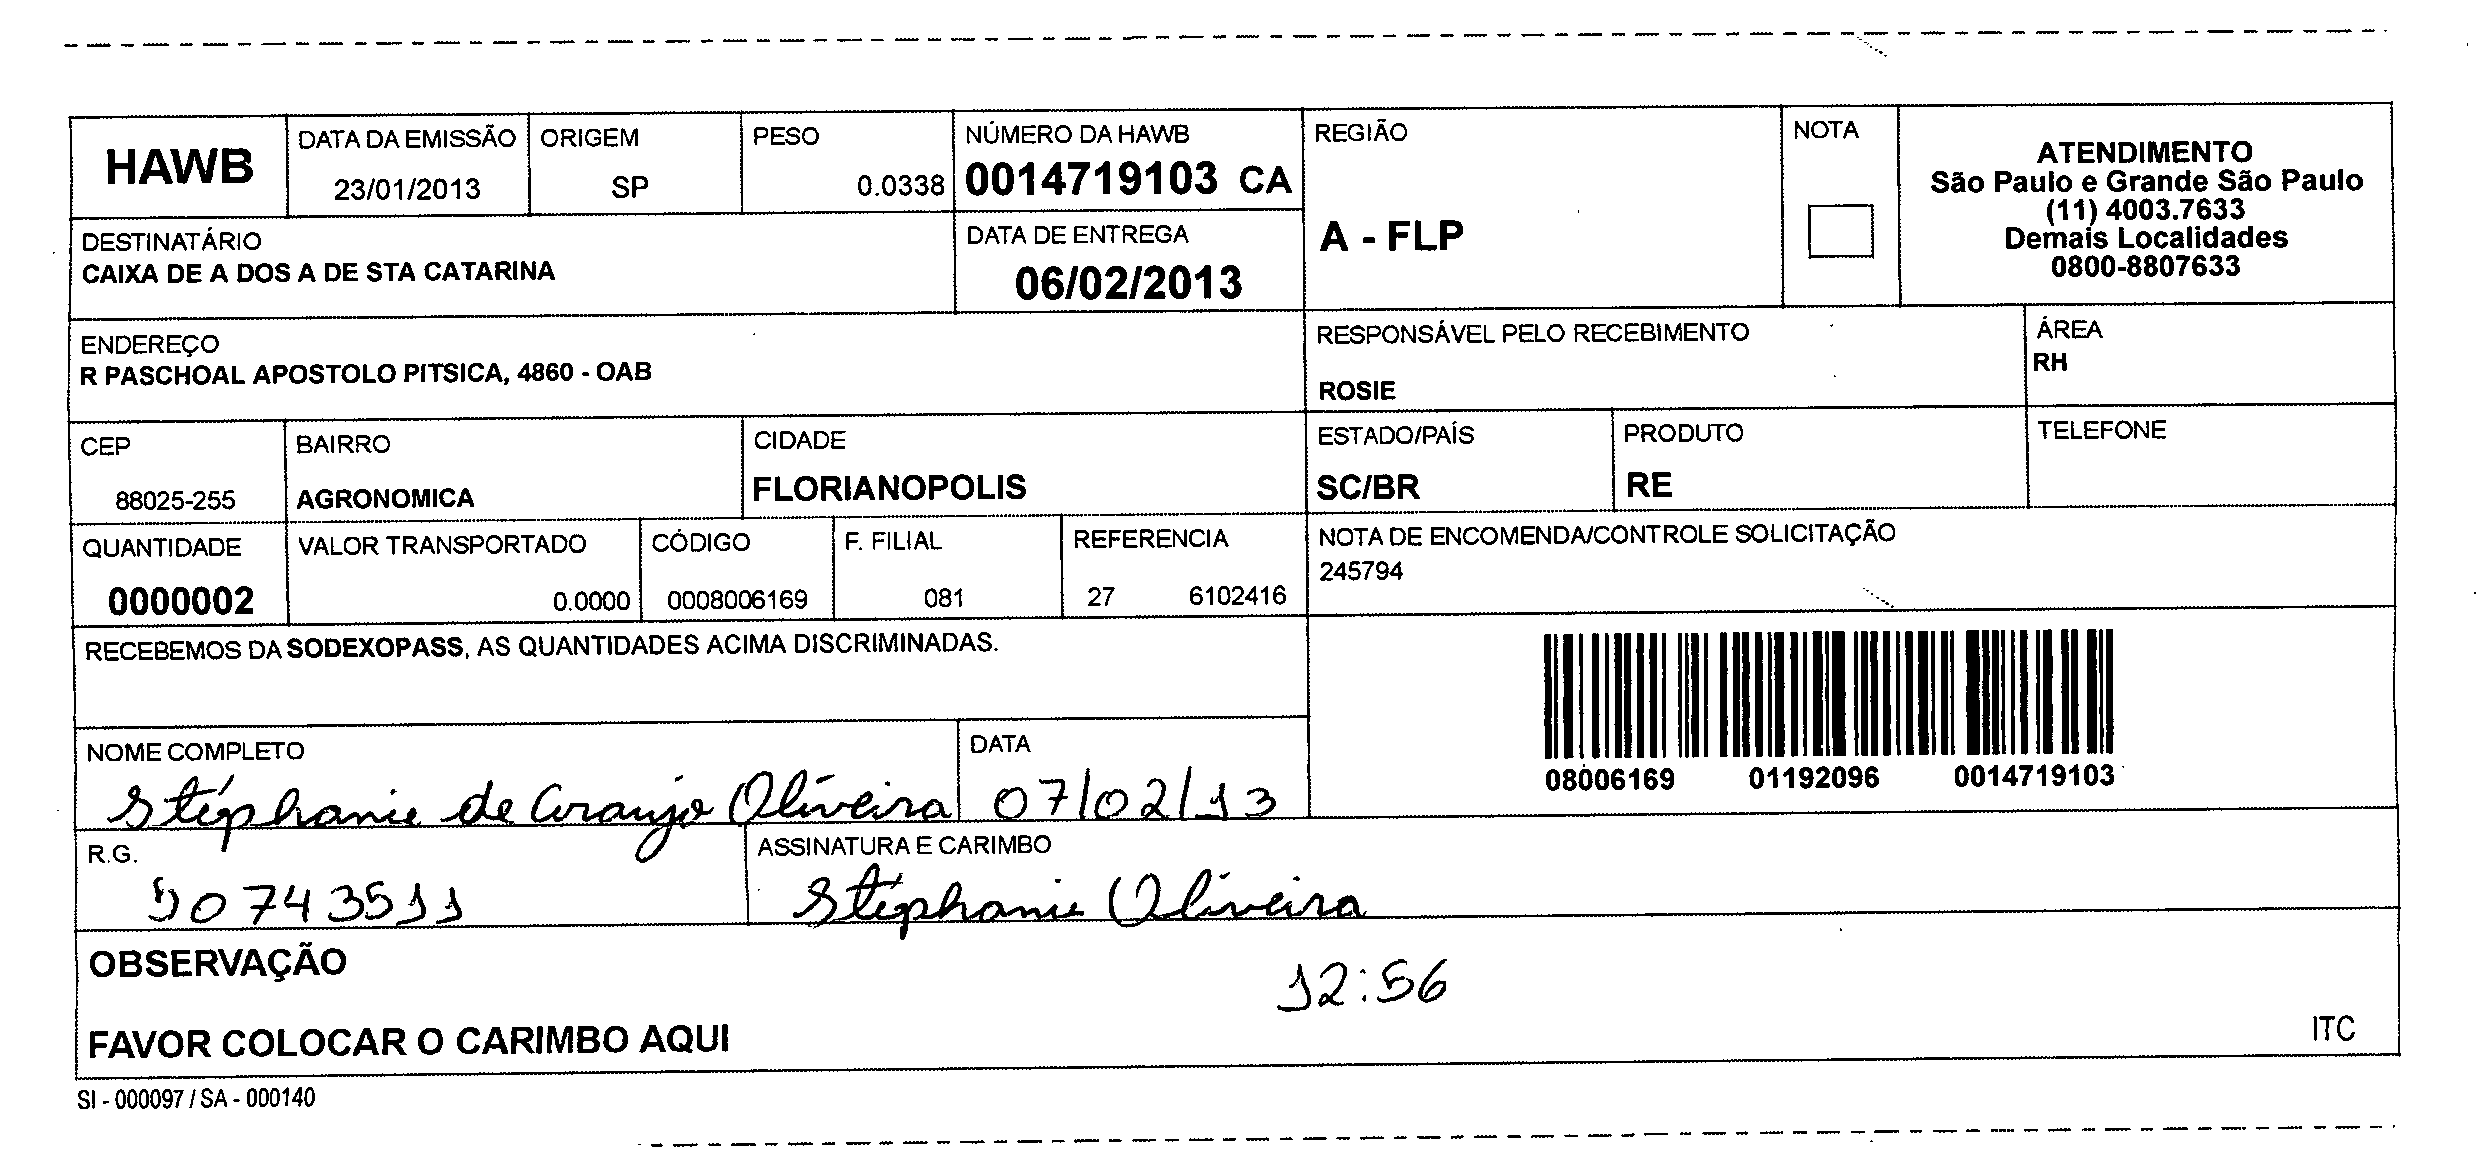 HAWB
DATA DA EMISSÃO
23/01/2013
ORIGEM
SP
PESO
0.0338
NÚMERO DA HAWB
0014719103 CA
REGIÃO
A - FLP
NOTA
ATENDIMENTO
São Paulo e Grande São Paulo
(11) 4003.7633
Demais Localidades
0800-8807633
DESTINATÁRIO
CAIXA DE A DOS A DE STA CATARINA
DATA DE ENTREGA
06/02/2013
ENDEREÇO
R PASCHOAL APOSTOLO PITSICA, 4860 - OAB
RESPONSÁVEL PELO RECEBIMENTO
ROSIE
ÁREA
RH
CEP
88025-255
BAIRRO
AGRONOMICA
CIDADE
FLORIANOPOLIS
ESTADO/PAÍS
SC/BR
PRODUTO
RE
TELEFONE
QUANTIDADE
0000002
VALOR TRANSPORTADO
0.0000
CÓDIGO
0008006169
F. FILIAL
081
REFERENCIA
27 6102416
NOTA DE ENCOMENDA/CONTROLE SOLICITAÇÃO
245794
RECEBEMOS DA SODEXOPASS, AS QUANTIDADES ACIMA DISCRIMINADAS.
08006169 01192096 0014719103
NOME COMPLETO
Stéphanie de Araujo Oliveira
DATA
07/02/13
R.G.
50743511
ASSINATURA E CARIMBO
Stéphanie Oliveira
OBSERVAÇÃO
12:56
FAVOR COLOCAR O CARIMBO AQUI
ITC
SI - 000097 / SA - 000140